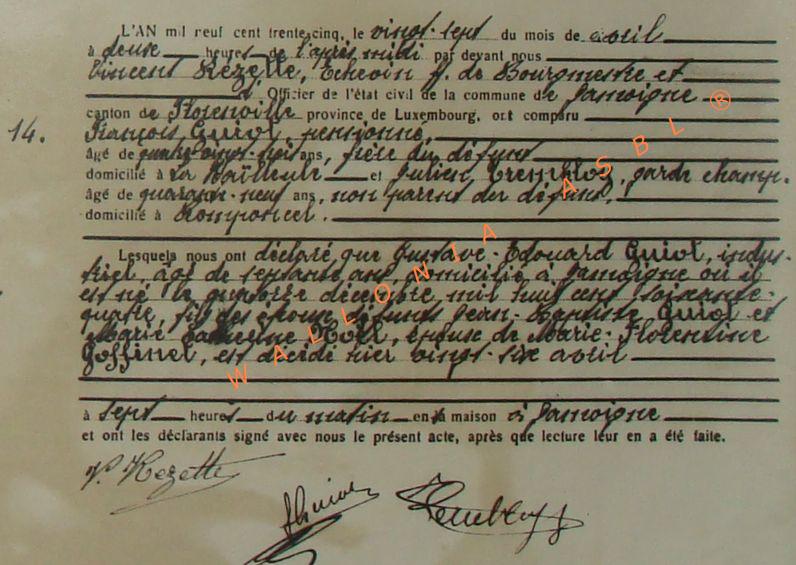 L'AN mil neuf cent trente cinq, le vingt-sept du mois de avril
à deux heures de l'après midi par devant nous
Vincent Rézette, Echevin f. de Bourgmestre et
Officier de l'état civil de la commune de Jamoigne
canton de Florenville province de Luxembourg, ont comparu
14.
François Guiot, pensionné,
âgé de quatre vingt-trois ans, frère du défunt
domicilié à La Hailleule et Julien Trembloy, garde champ.
âgé de quarante-neuf ans, non parent du défunt,
domicilié à Romponcel.
Lesquels nous ont déclaré que Gustave-Edouard Guiot, indus-
triel, âgé de septante ans, domicilié à Jamoigne où il
est né le quatorze décembre mil huit cent soixante-
quatre, fils des époux défunts Jean-Baptiste Guiot et
Marie Catherine Noël, époux de Marie-Florentine
Goffinet, est décédé hier vingt-six avril
à sept heures du matin en sa maison à Jamoigne
et ont les déclarants signé avec nous le présent acte, après que lecture leur en a été faite.
V. Rezette
Guiot Trembloy
WALLONIA ASBL ®